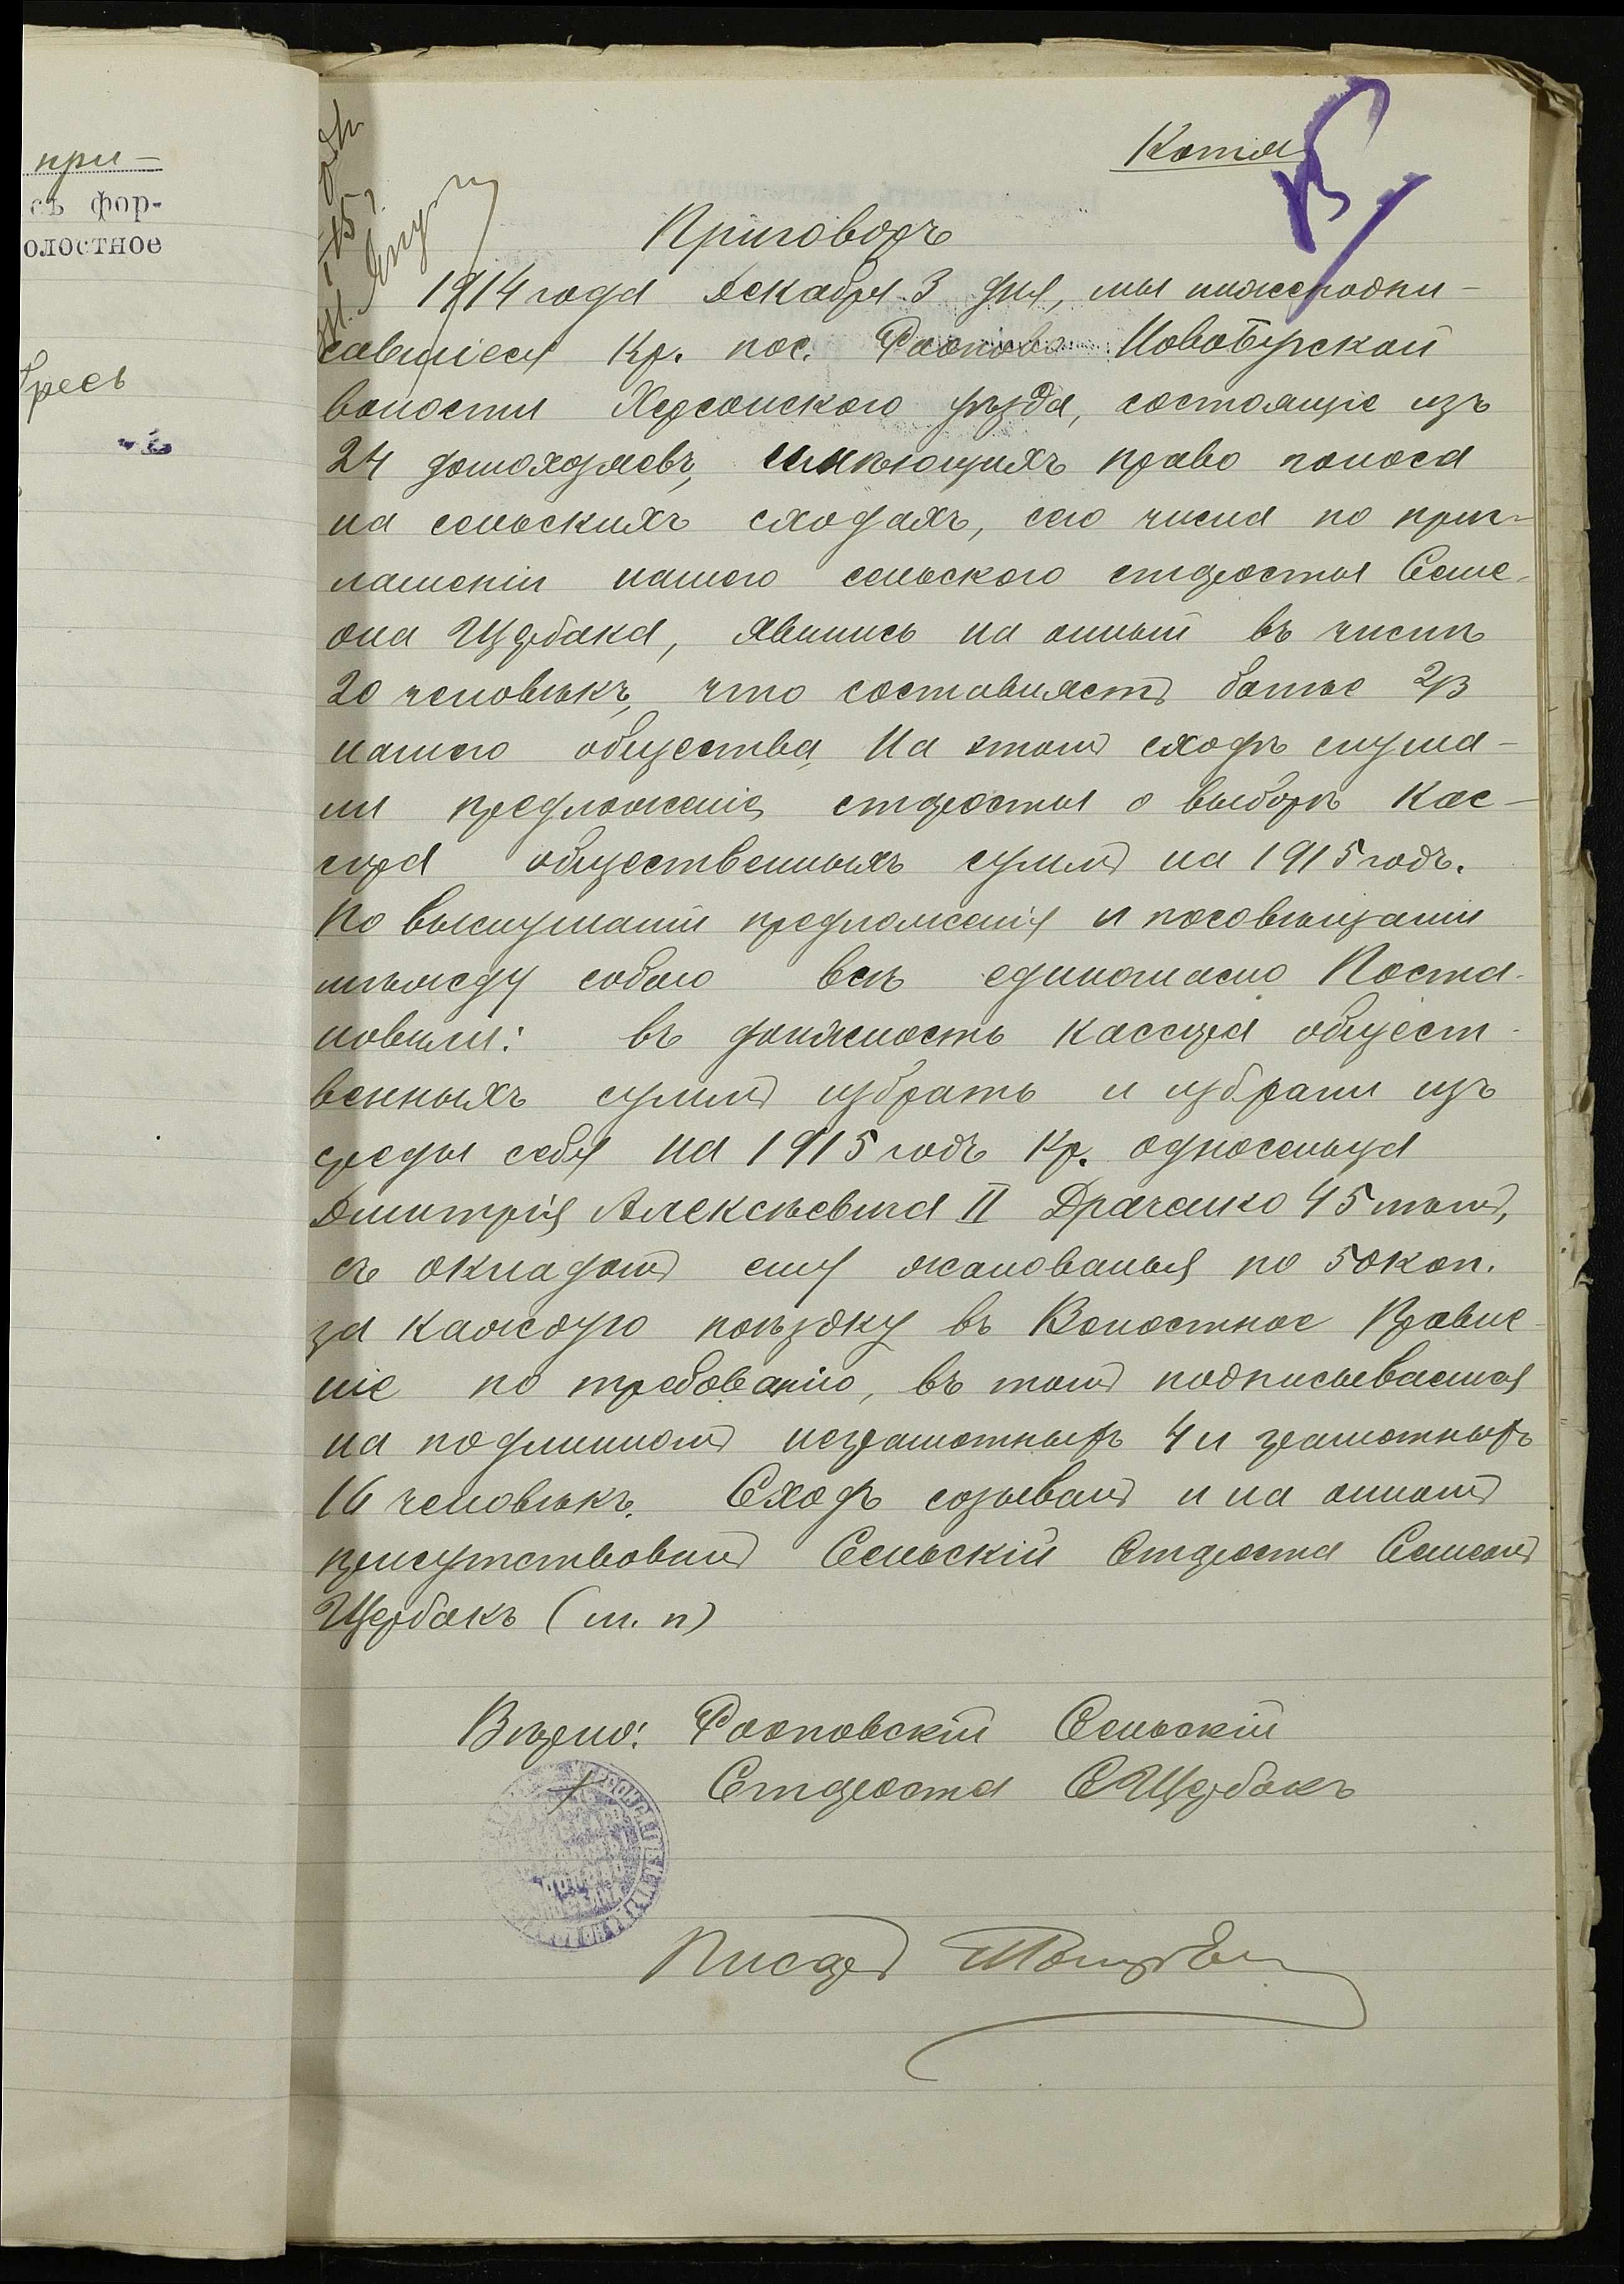 при-
съ фор-
олостное
Копія
Приговоръ
1914 года Декабря 3 дня, мы нижеподпи-
савшіеся Кр. пос. Новобугской
волости Херсонскаго уѣзда, состоящіе изъ
24 домохозяевъ, имѣющихъ право голоса
на сельскихъ сходахъ, сего числа по приг-
лашенію нашего сельского старосты Семе-
она Щербака, явились на оный въ числѣ
20 человѣкъ, что составляетъ болѣе 2/3
нашего общества, На этомъ сходѣ слуша-
ли предложеніе старосты о выборѣ Кас-
сира общественныхъ суммъ на 1915 годъ.
По выслушаніи предложенія и посовѣщаніи
мѣжду собою всѣ единогласно Поста-
новили: въ должность кассира общест-
венныхъ суммъ избрать и избрали изъ
среды себя на 1915 годъ Кр. односельца
Дмитрія Алексѣевича II Драченко 45 лѣтъ,
съ окладомъ ему жалованья по 50 коп.
за каждую поѣздку въ Волостное Правле-
ніе по требованію, въ томъ подписываемся
на подлинномъ неграмотныхъ 4 и грамотныхъ
16 человѣкъ. Сходъ созывалъ и на ономъ
присутствовалъ Сельскій Староста Семенъ
Щербакъ (м. п)
Вѣрно: Сельскій
Староста С Щербакъ
Писарь